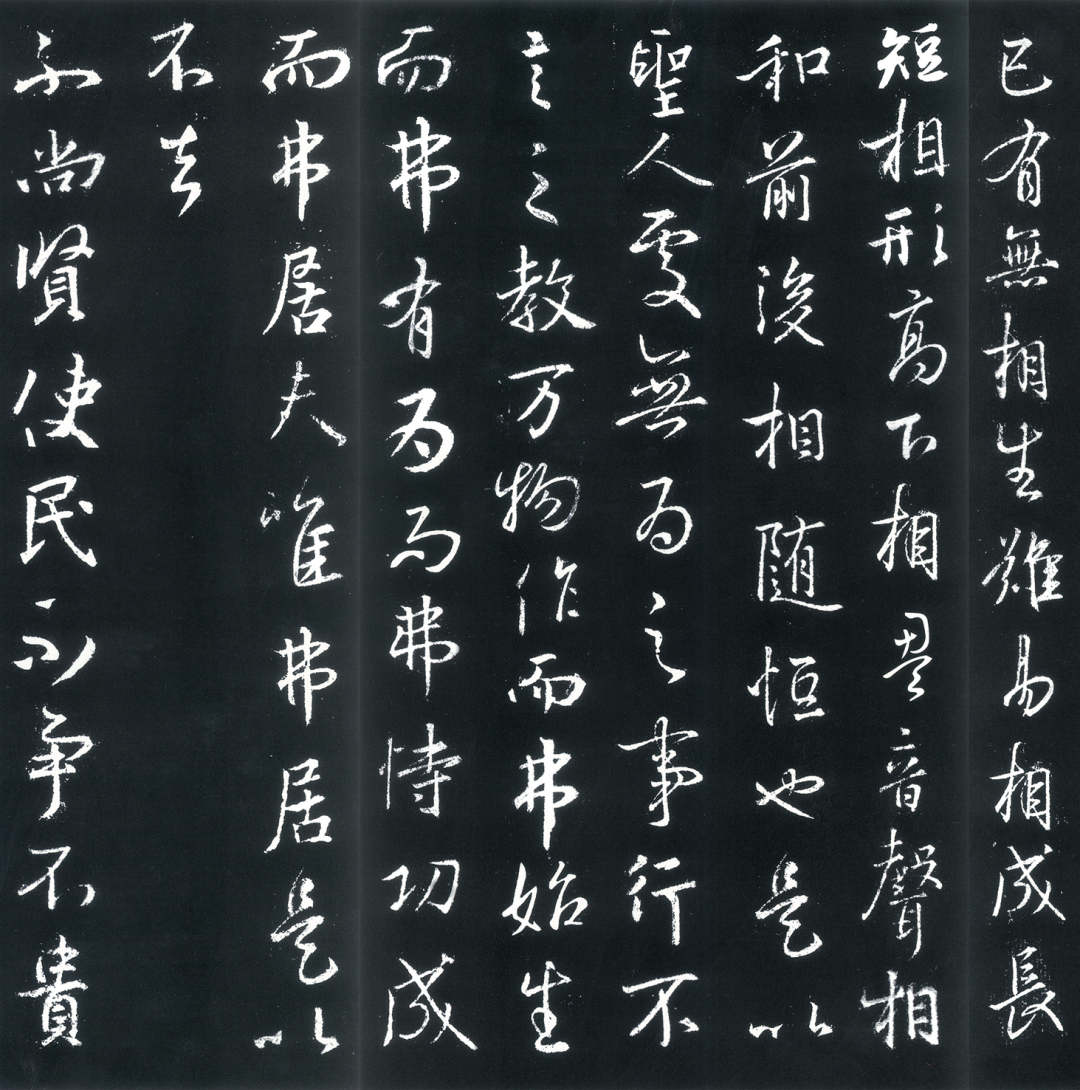 已有無相生難易相成長
短相形高下相盈音聲相
和前後相隨恒也是以
聖人處無為之事行不
言之教万物作而弗始生
而弗有為而弗恃功成
而弗居夫唯弗居是以
不去
不尚賢使民不爭不貴